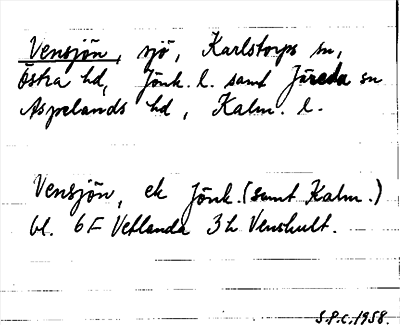 Vensjön, sjö, Karlstorps sn,
Östra hd, Jönk. l. samt Järeda sn
Aspelands hd, Kalm. l.
Vensjön, ek Jönk. (samt Kalm.)
bl. 6F Vetlanda 3h Venshult.
S.P.C. 1958.